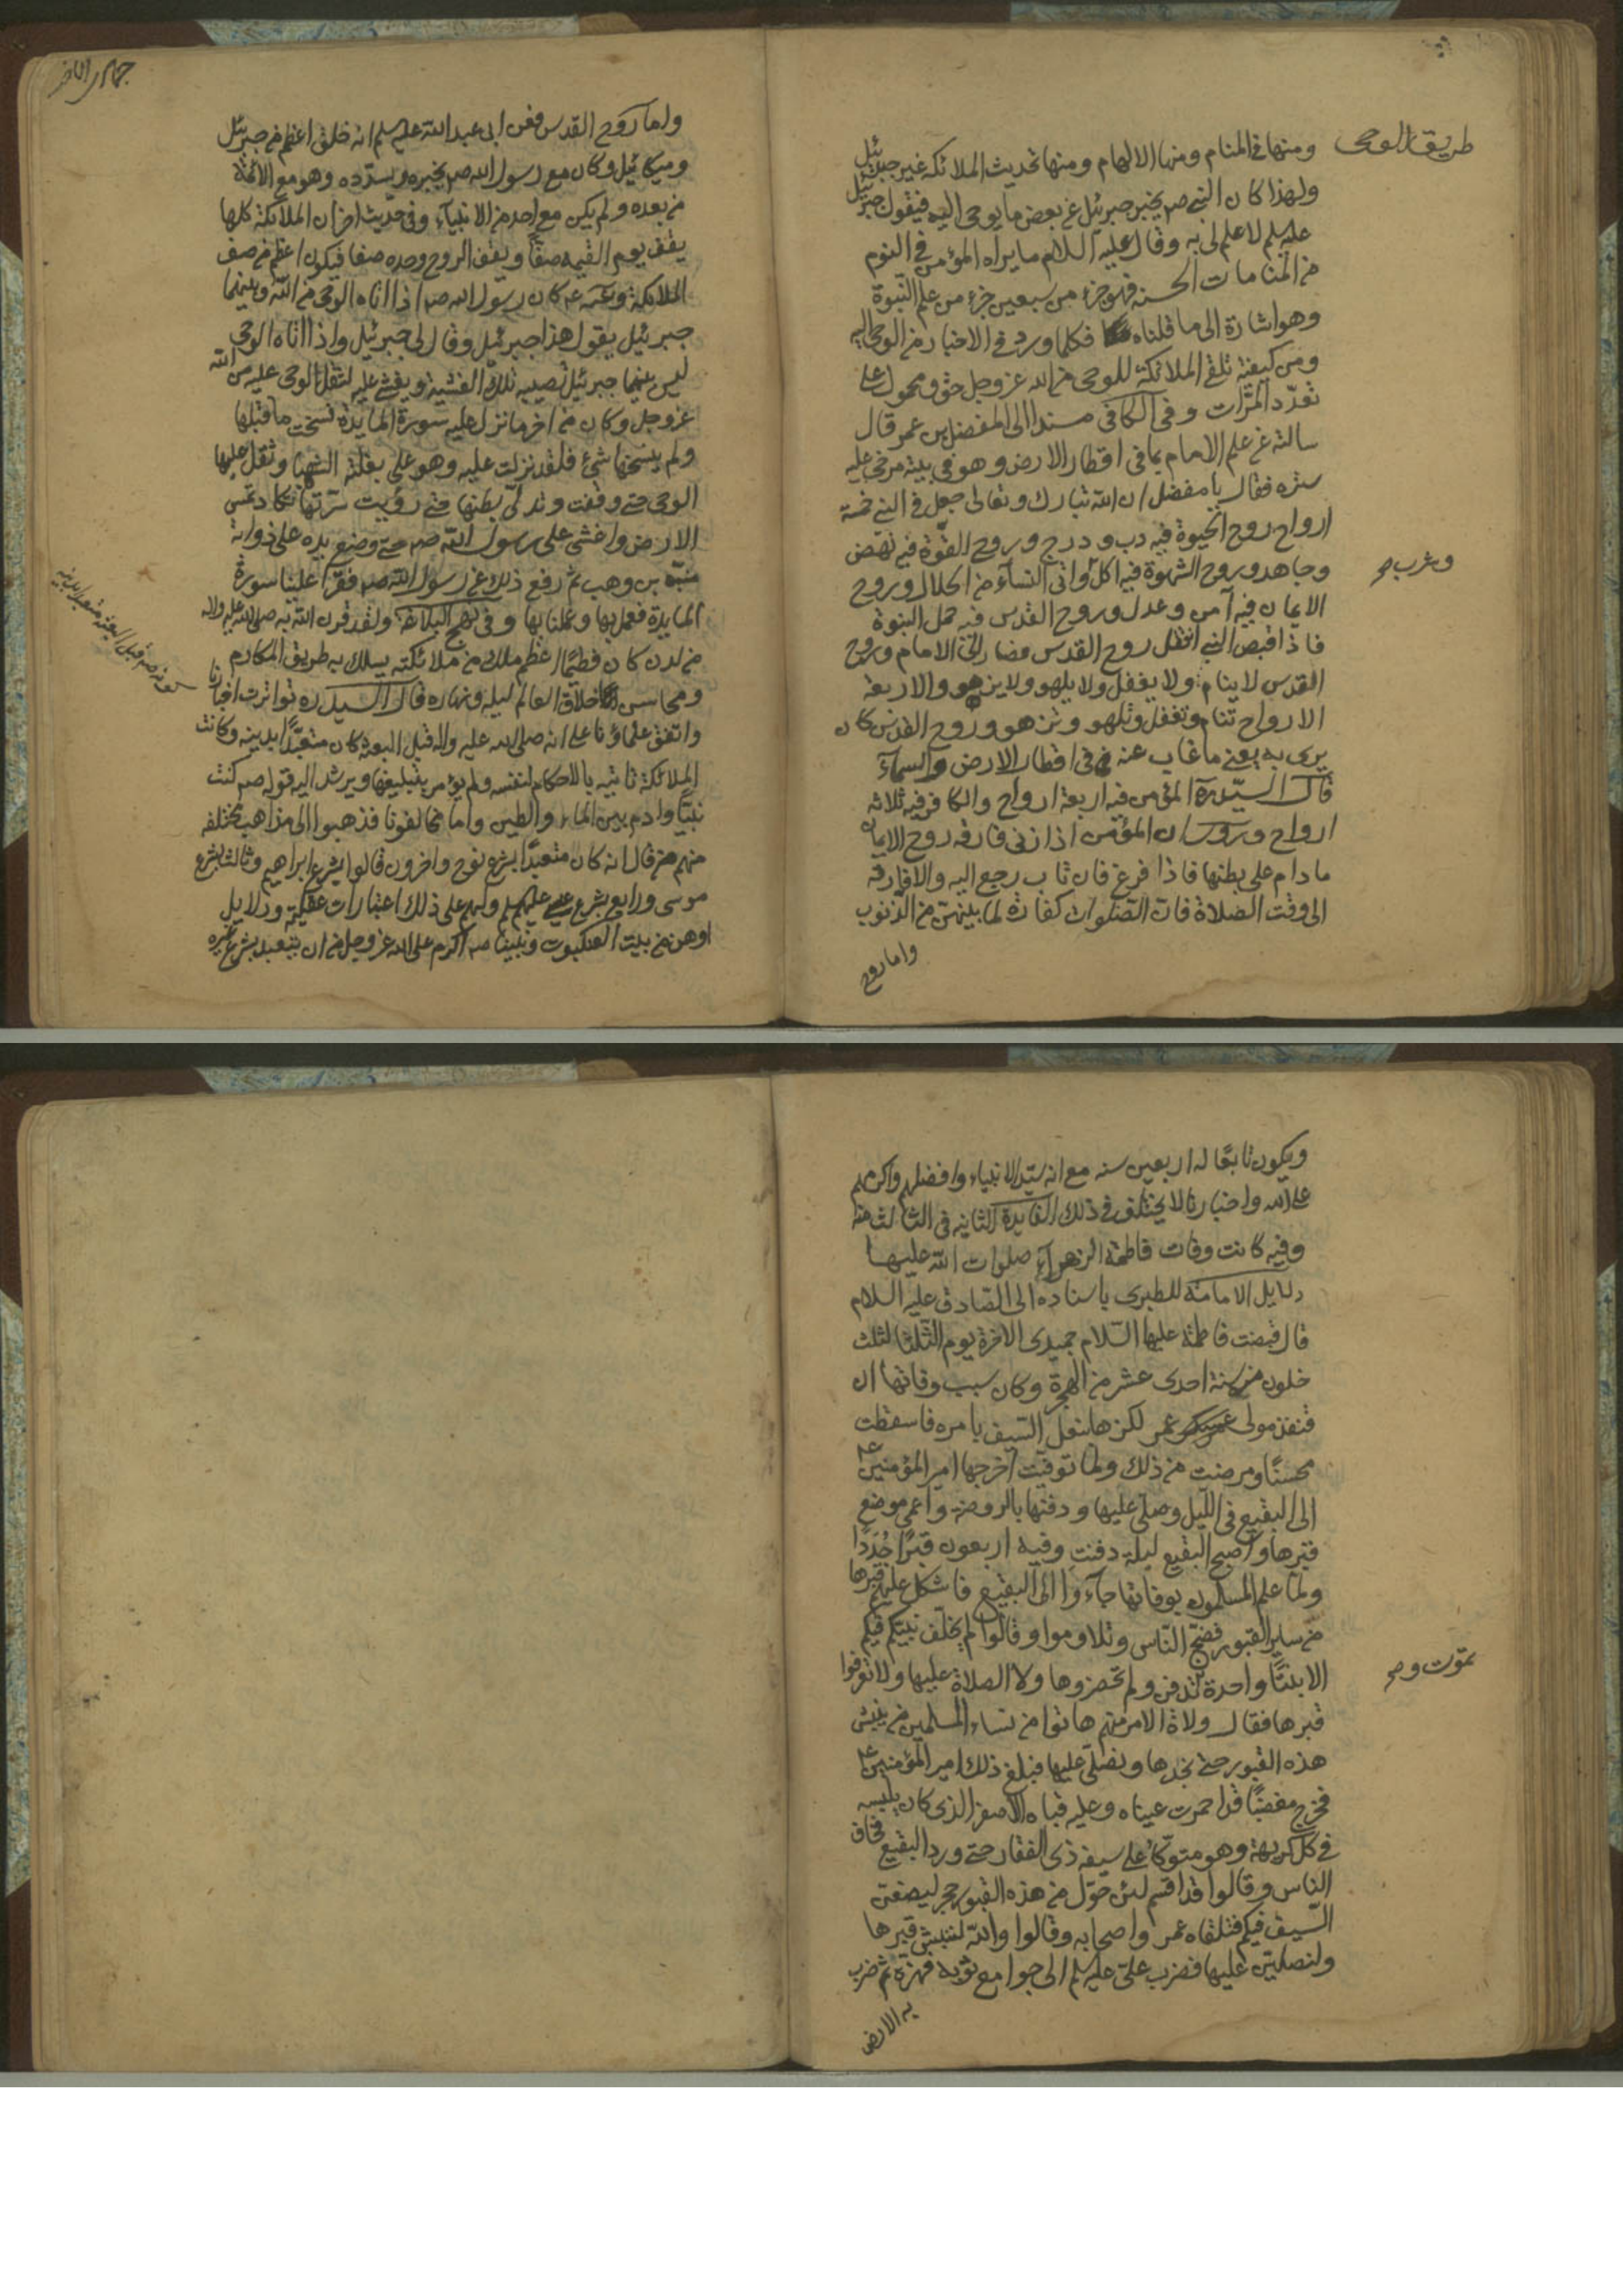 طريق الوحى
ومنها فى المنام ومنها الالهام ومنها تحديث الملائكة غير جبرئيل
ولهذا كان النبى صم يخبر جبرئيل عن بعض ما يوحى اليه فيقول جبرئيل
عليه سلم لا علم لى به وقال عليه السلام ما يراه المؤمن فى النوم
من المنامات الحسنه فهو جزء من سبعين جزء من علم النبوة
وهو اشارة الى ما قلناه فكلما ورد فى الاخبار من الوحى اليه
ومن كيفية تلقى الملائكة للوحى من الله عز وجل حق ومحمول على
تعدد المرّات وفى الكافى مسندا الى المفضل بن عمر قال
سالته عن علم الامام بما فى اقطار الارض وهو فى بيته مرخى عليه
ستره فقال يا مفضل ان الله تبارك وتعالى جعل فى النبى خمسة
ارواح روح الحيوة فيه دب ودرج وروح القوّة فيه نهض
وجاهد وروح الشهوة فيه اكل واتى النساء من الحلال وروح
وشرب صح
الايمان فيه آمن وعدل وروح القدس فيه حمل النبوة
فاذا قبض النبى انتقل روح القدس فصار الى الامام وروح
القدس لا ينام ولا يغفل ولا يلهو ولا يزهو والاربعة
الارواح تنام وتغفل وتلهو وتزهو وروح القدس كان
يرى به يعنى ما غاب عنه فى اقطار الارض والسماء
قال السيّد ره المؤمن فيه اربعة ارواح والكافر فيه ثلاثة
ارواح وروى ان المؤمن اذا زنى فارقه روح الايمان
ما دام على بطنها فاذا فرغ فان تاب رجع اليه والا فارقه
الى وقت الصلاة فان الصلوات كفارة لما بينهن من الذنوب
واما روح
واما روح القدس فعن ابى عبد الله عليه سلم انه خلق اعظم من جبرئيل
وميكائيل وكان مع رسول الله صم يخبره ويسدّده وهو مع الائمة
من بعده ولم يكن مع احد من الانبياء وفى حديث اخر ان الملائكة كلها
يقف يوم القيمه صفاً ويقف الروح وحده صفا فيكون اعظم من صف
الملائكة وعنه ع كان رسول الله صم اذا اتاه الوحى من الله وبينهما
جبرئيل يقول هذا جبرئيل وقال لى جبرئيل واذا اتاه الوحى
ليس بينهما جبرئيل تصيبه تلك الغشية ويغشى عليه لثقل الوحى عليه من الله
عز وجل وكان من اخر ما نزل عليه سورة المايدة نسخت ما قبلها
ولم ينسخها شئ فلقد نزلت عليه وهو على بغلته الشهبا وثقل عليها
الوحى حتى وقفت وتدلّى بطنها حتى رؤيت سرّتها تكاد تمس
الارض واغشى على رسول الله صم حتى وضع يده على ذوابة
منبّه بن وهب ثم رفع ذلك عن رسول الله صم فقرا علينا سورة
المايدة فعمل بها وعملنا بها وفى نهج البلاغة ولقد قرن الله به صلى الله عليه واله
من لدن كان فطيما اعظم ملك من ملائكته يسلك به طريق المكارم
ومحاسن اخلاق العالم ليله ونهاره قال السيد ره تواترت اخبارنا
واتفق علماؤنا على انه صلى الله عليه واله قبل البعثة كان متعبّدا بدينه وكانت
الملائكة تاتيه بالاحكام لنفسه ولم يؤمر بتبليغها ويرشد اليه قوله صم كنت
نبيّا وادم بين الماء والطين واما مخالفونا فذهبوا الى مذاهب مختلفه
منهم من قال انه كان متعبدًا بشرع نوح واخرون قالوا بشرع ابراهيم وثالث بشرع
موسى ورابع بشرع عيسى عليهم سلم ولهم على ذلك اعتبارات عقلية ودلايل
اوهن من بيت العنكبوت ونبينا صم اكرم على الله عز وجل من ان يتعبد بشرع غيره
كونه صم قبل البعثة متعبدا بدينه
ويكون تابعًا له اربعين سنه مع انه سيّد الانبياء وافضلهم واكرمهم
على الله واخبارنا لا يختلف فى ذلك الفايدة الثانيه فى الثالث منه
وفيه كانت وفات فاطمة الزهراء صلوات الله عليها
دلايل الامامة للطبرى باسناده الى الصادق عليه السلام
قال قبضت فاطمة عليها السّلام جميدى الاخرة يوم الثلثا لثلث
خلون من سنة احدى عشر من الهجرة وكان سبب وفاتها ان
قنفذ مولى عمر لكزها بنعل السّيف بامره فاسقطت
محسنًا ومرضت من ذلك ولما توفيت اخرجها امير المؤمنين ع
الى البقيع فى الليل وصلّى عليها ودفنها بالروضة واعمى موضع
قبرها واصبح البقيع ليلة دفنت وفيه اربعون قبرًا جُدَدًا
ولمّا علم المسلمون بوفاتها جآءوا الى البقيع فاشكل عليهم قبرها
من ساير القبور فضجّ النّاس وتلاوموا وقالوا لم يخلّف نبيّكم فيكم
الا بنتًا واحدة تدفن ولم تحضروها ولا الصلاة عليها ولا تعرفوا
تموت و صح
قبرها فقال ولاة الامر منهم هاتوا من نساء المسلمين من ينبش
هذه القبور حتى نجدها ونصلّى عليها فبلغ ذلك امير المؤمنين ع
فخرج مغضبًا قد احمرت عيناه وعليه قباه الاصفر الذى كان يلبسه
فى كل كريهة وهو متوكّأ على سيفه ذى الفقار حتى ورد البقيع فخاف
الناس وقالوا قد اقسم لئن حوّل من هذه القبور حجر ليضعن
السّيف فيكم فتلقاه عمر واصحابه وقالوا والله لننبش قبرها
ولنصلين عليها فضرب على عليه سلم الى جوامع ثوبه فهزه ثم ضرب
به الارض